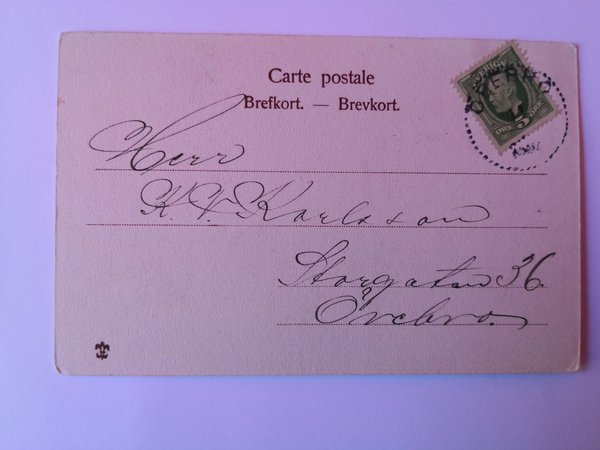 Carte postale
Brefkort. — Brevkort.
SVERIGE
5
ÖRE
Herr
K. V. Karlsson
Storgatan 36.
Örebro.